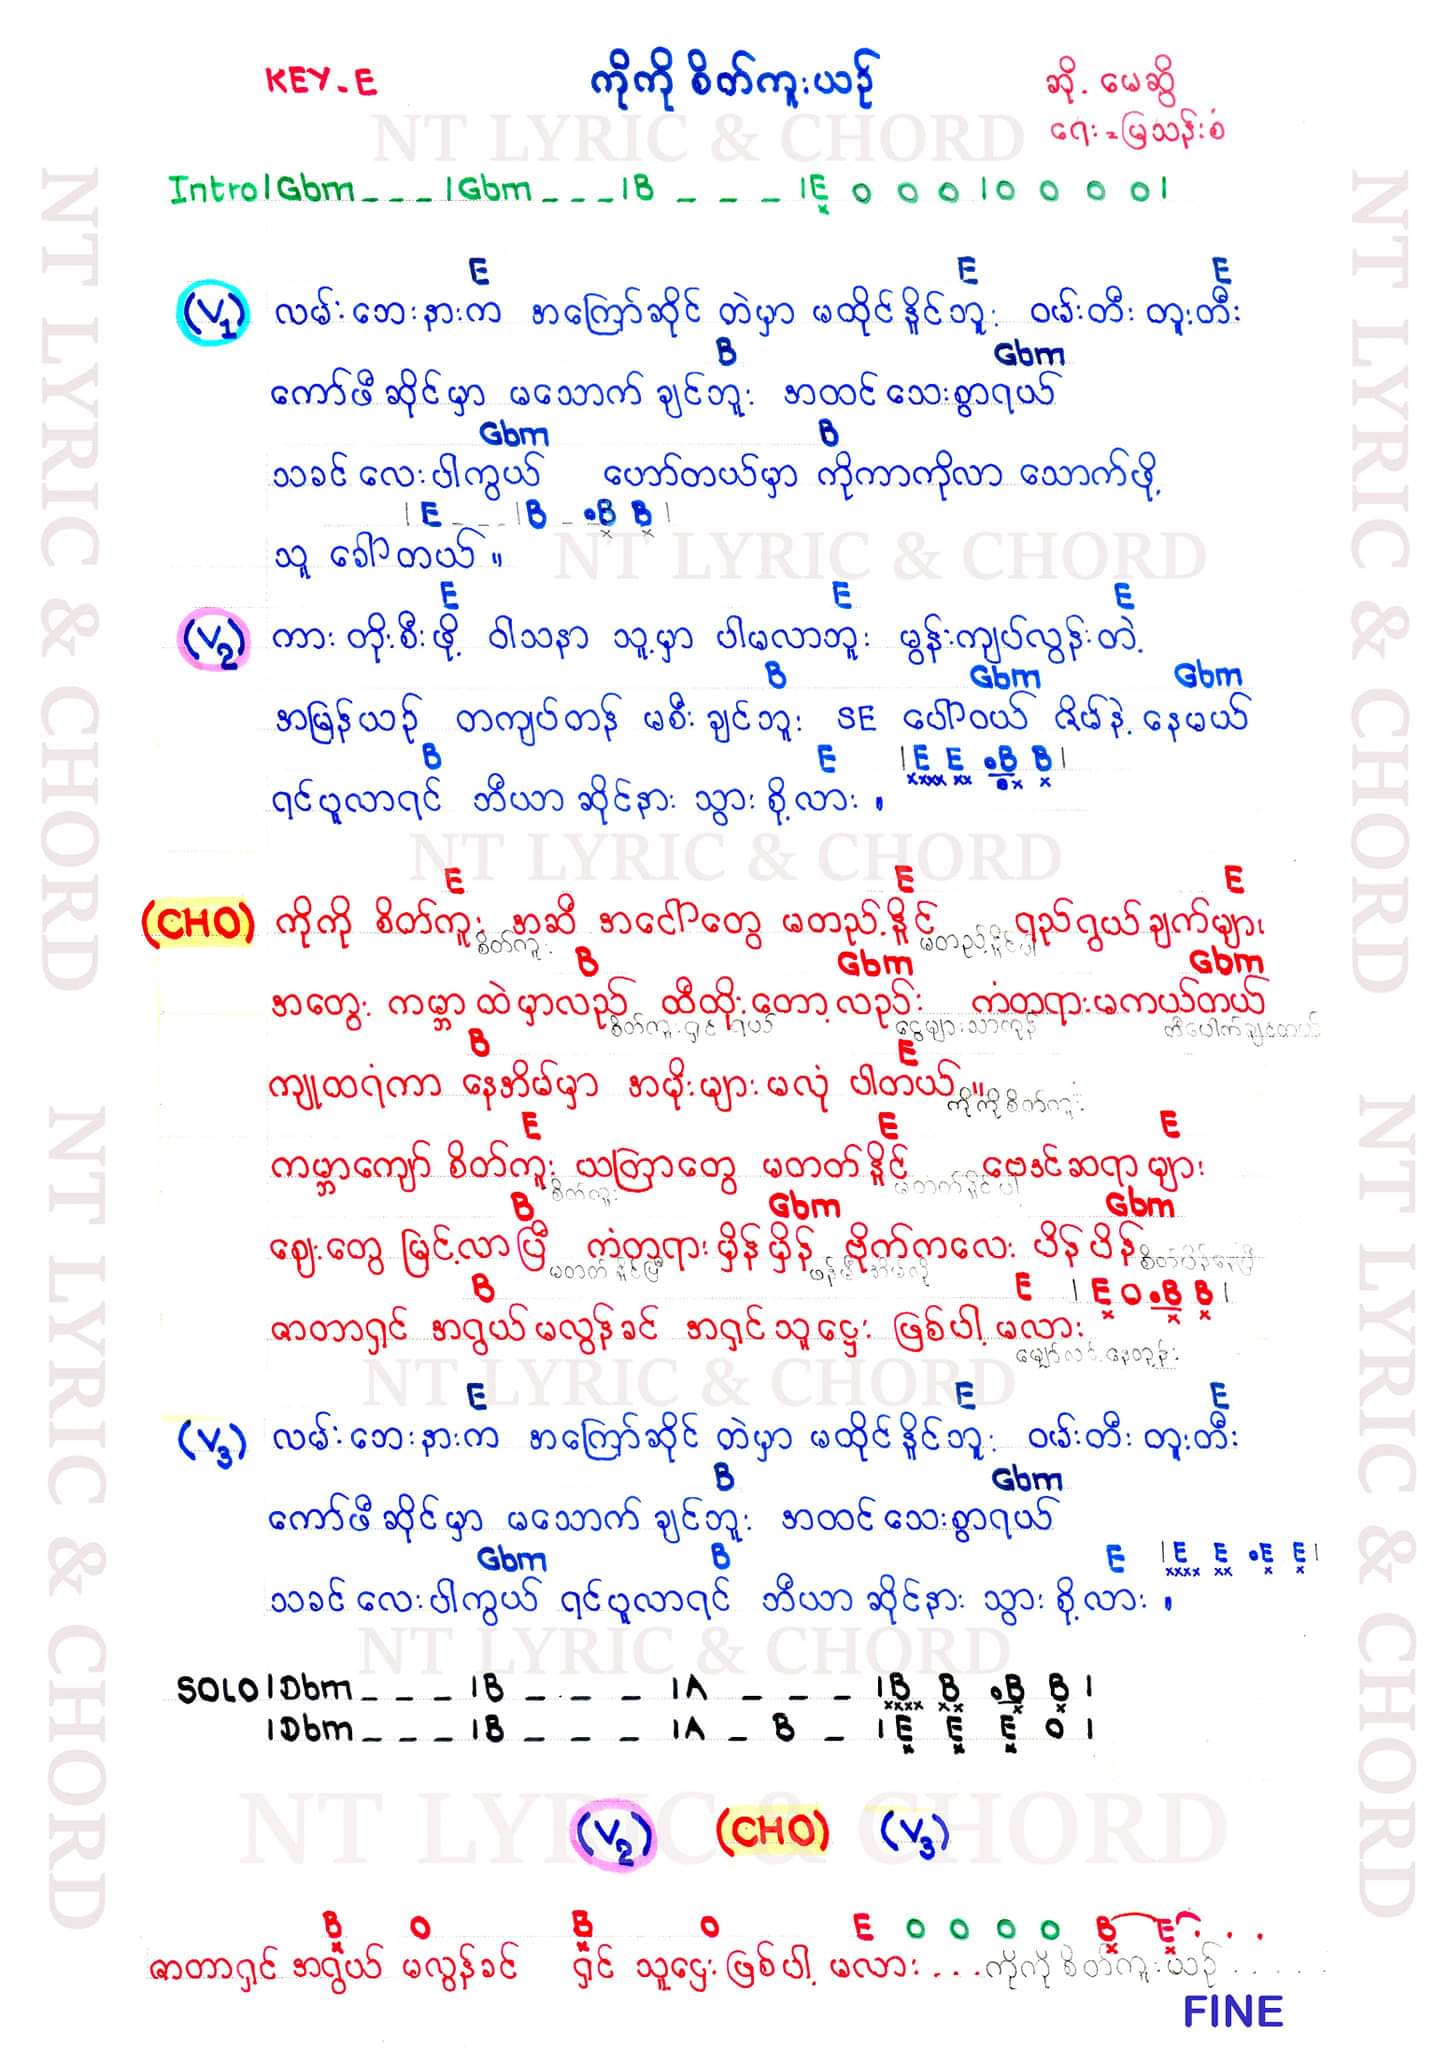 KEY-E
ကိုကို စိတ်ကူးယဉ်
ဆို. မေဆွိ
ရေး = မြသန်းစံ
NT LYRIC & CHORD
Intro |Gbm _ _ _ |Gbm _ _ _ |B _ _ _ |E o o o |o o o o|
E E E
(V1) လမ်းဘေးနားက အကြော်ဆိုင် တဲမှာ မထိုင်နိူင်ဘူး ဝမ်းတီး တူးတီး
B Gbm
ကော်ဖီဆိုင်မှာ မသောက်ချင်ဘူး အထင်သေးစွာရယ်
Gbm B
သခင်လေးပါကွယ် ဟော်တယ်မှာ ကိုကာကိုလာ သောက်ဖို့
|E _ _ _ |B _ .B B|
သူ ခေါ်တယ် ။
NT LYRIC & CHORD
E E E
(V2) ကား တိုးစီးဖို့ ဝါသနာ သူ့မှာ ပါမလာဘူး မွန်းကျပ်လွန်းတဲ့
B Gbm Gbm
အမြန်ယဉ် တကျပ်တန် မစီးချင်ဘူး SE ပေါ်ဝယ် ဇိမ်နဲ့ နေမယ်
B E |E E .B B|
ရင်ပူလာရင် ဘီယာဆိုင်နား သွားစို့လား ။
NT LYRIC & CHORD
E E E
(CHO) ကိုကို စိတ်ကူး အဆီ အငေါ်တွေ မတည့်နိူင် ရည်ရွယ်ချက်များ
စိတ်ကူး မတည့်နိူင်ပါ
B Gbm Gbm
အတွေး ကမ္ဘာထဲမှာလည် ထီထိုးတော့လည်း ကံတရားမကယ်တယ်
စိတ်ကူးရှင်ရယ် ငွေများသာကုန် ထီပေါက်ချင်တယ်
B E
ကျုထရံကာ နေအိမ်မှာ အမိုးများမလုံ ပါတယ် ။
ကိုကိုစိတ်ကူး
E E E
ကမ္ဘာကျော် စိတ်ကူး ယတြာတွေ မတတ်နိူင် ဗေဒင်ဆရာများ
စိတ်ကူး မတတ်နိူင်ပါ
B Gbm Gbm
ဈေးတွေ မြင့်လာပြီ ကံတရားမှိန်မှိန် ဗိုက်ကလေး ပိန်ပိန်
မတတ်နိူင်ပြီ စိတ်ပိန်နေပြီ
B E |E O .B B|
ဇာတာရှင် အရွယ်မလွန်ခင် အရှင်သူဌေး ဖြစ်ပါ့မလား
မျှော်လင့်နေတုန်း
NT LYRIC & CHORD
E E E
(V3) လမ်းဘေးနားက အကြော်ဆိုင် တဲမှာ မထိုင်နိူင်ဘူး ဝမ်းတီး တူးတီး
B Gbm
ကော်ဖီဆိုင်မှာ မသောက်ချင်ဘူး အထင်သေးစွာရယ်
Gbm B E |E E .E E|
သခင်လေးပါကွယ် ရင်ပူလာရင် ဘီယာဆိုင်နား သွားစို့လား ။
NT LYRIC & CHORD
SOLO |Dbm _ _ _ |B _ _ _ |A _ _ _ |B B .B B|
|Dbm _ _ _ |B _ _ _ |A _ B _ |E E E O|
NT LYRIC & CHORD
(V2) (CHO) (V3)
B O B O E o o o o B E . . .
ဇာတာရှင် အရွယ် မလွန်ခင် ရှင် သူဌေးဖြစ်ပါ့ မလား . . . ကိုကိုစိတ်ကူးယဉ် . . . . .
FINE
NT LYRIC & CHORD
NT LYRIC & CHORD
NT LYRIC & CHORD
NT LYRIC & CHORD